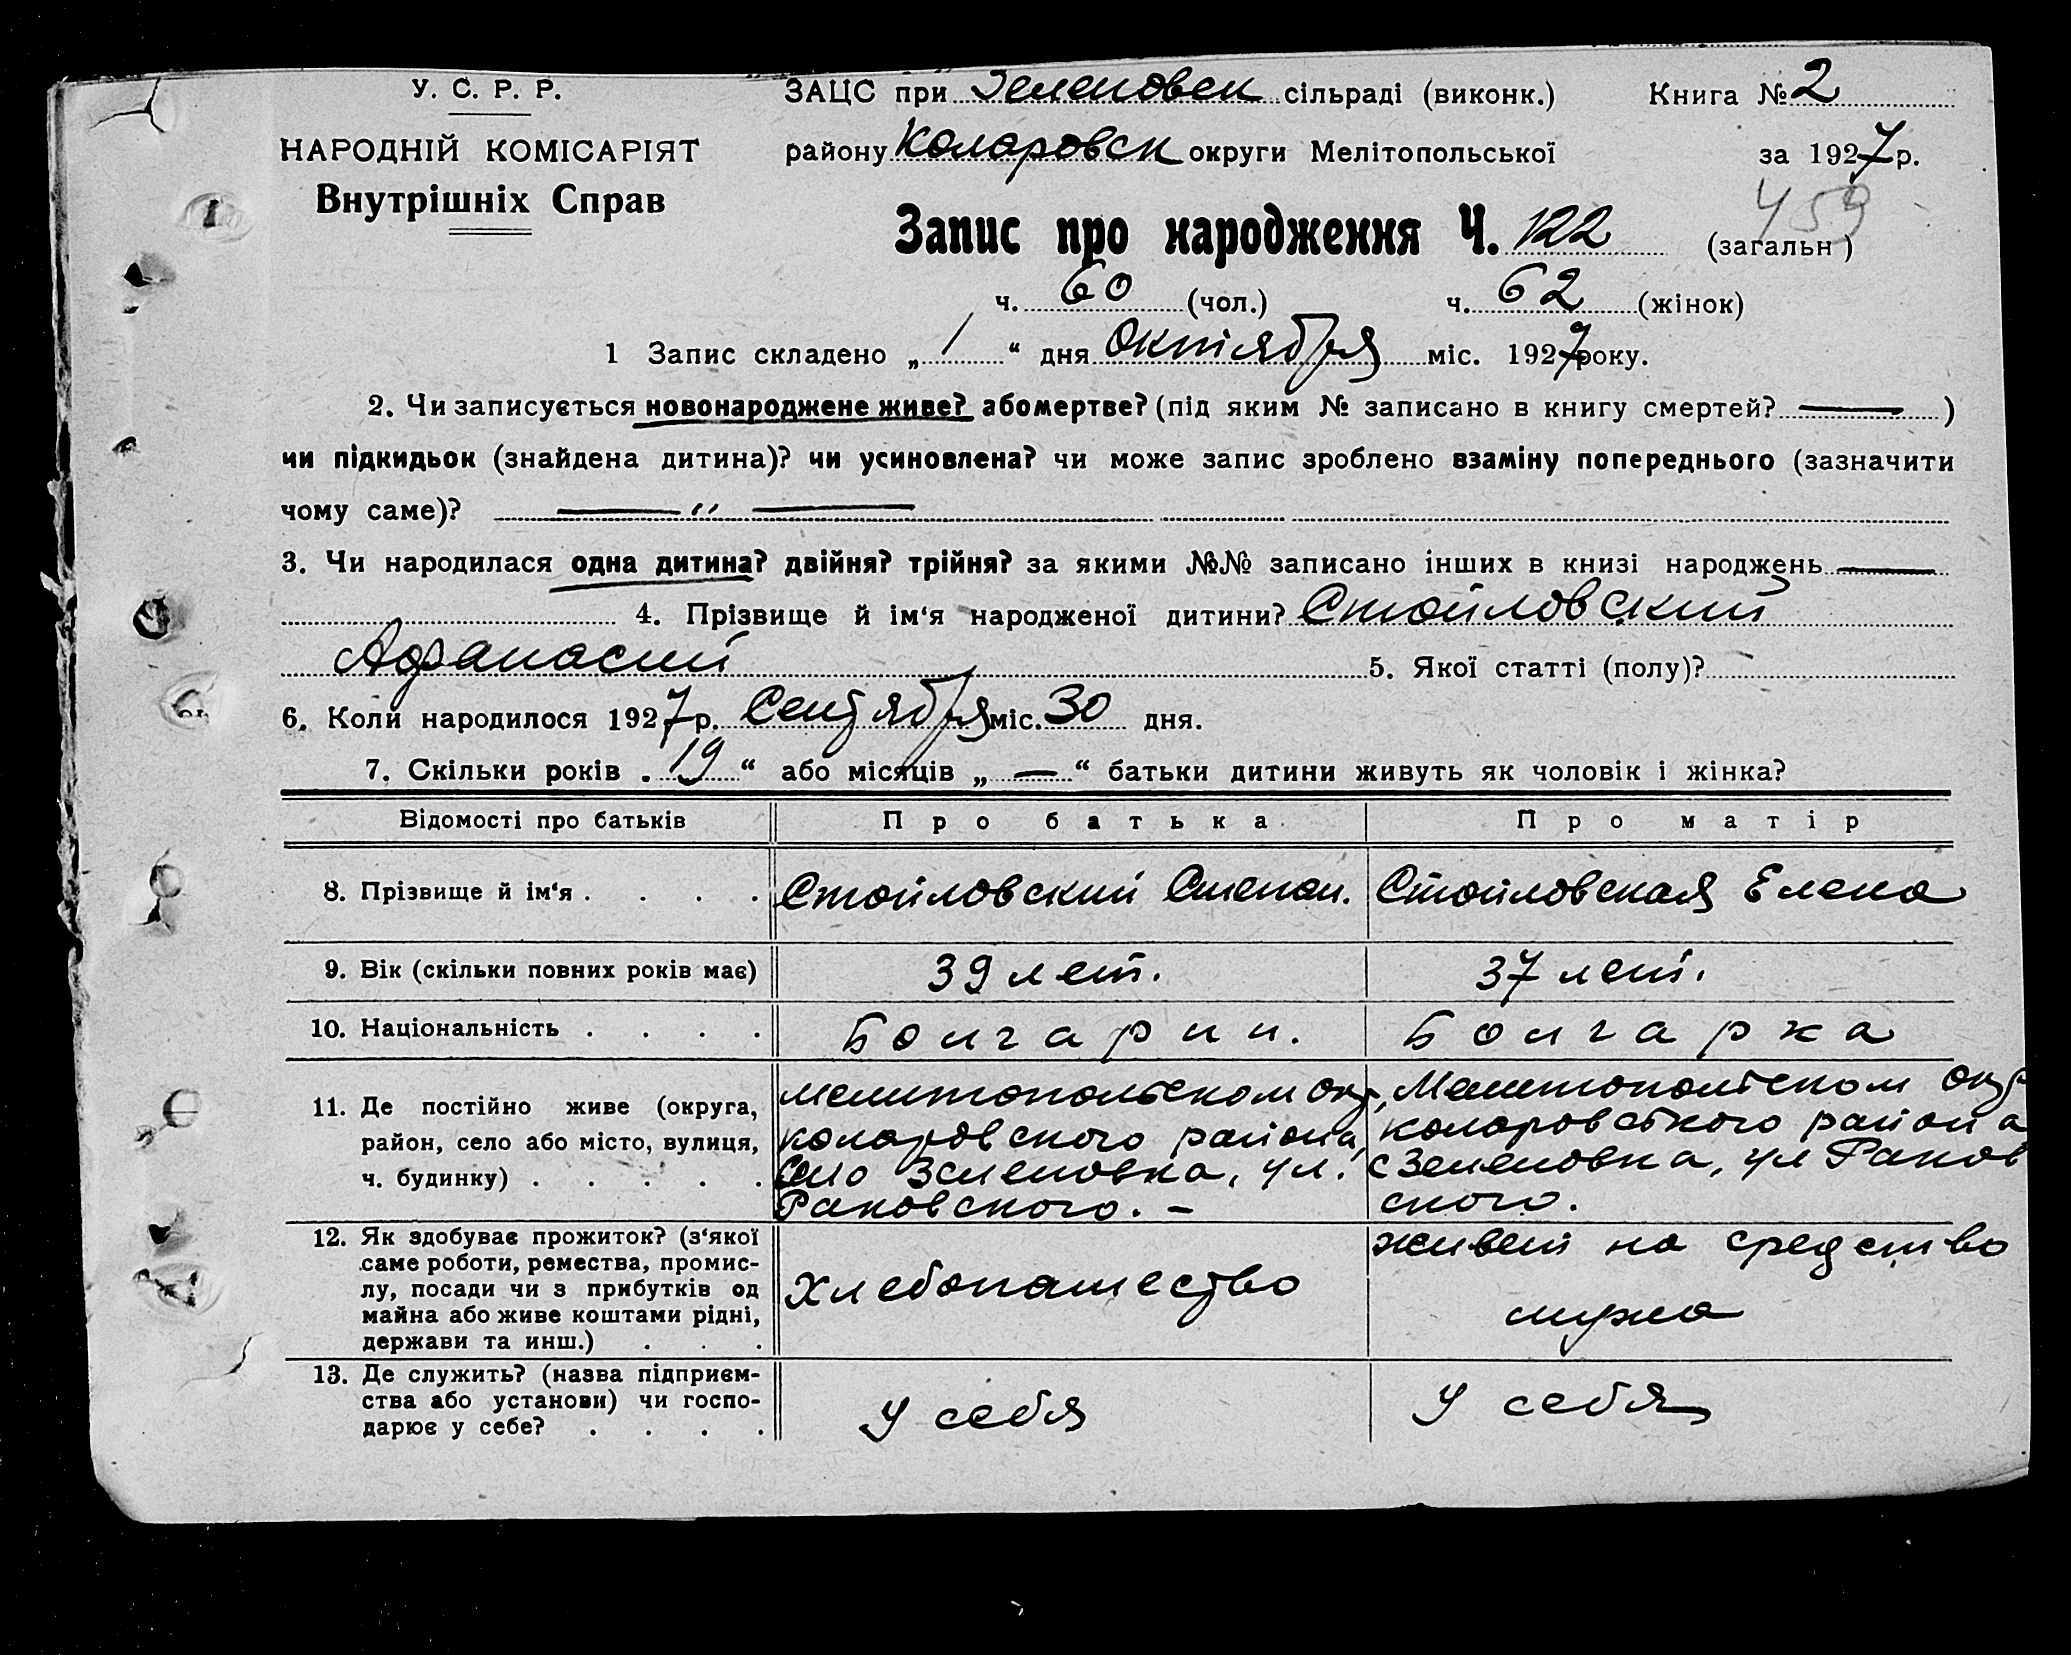 У. С. Р. Р.
НАРОДНІЙ КОМІСАРІЯТ
Внутрішніх Справ
ЗАЦС при Зеленовск сільраді (виконк.) Книга № 2
району Коларовск округи Мелітопольської за 1927 р.
459
Запис про народження Ч. 122 (загальн)
ч. 60 (чол.) ч. 62 (жінок)
1 Запис складено „ 1 “ дня Октября міс. 1927 року.
2. Чи записується новонароджене живе? абомертве? (під яким № записано в книгу смертей? — )
чи підкидьок (знайдена дитина)? чи усиновлена? чи може запис зроблено взаміну попереднього (зазначити
чому саме)? — „ —
3. Чи народилася одна дитина? двійня? трійня? за якими №№ записано інших в книзі народжень —
4. Прізвище й ім‘я народженої дитини? Стойловский
Афанасий 5. Якої статті (полу)?
6. Коли народилося 1927 р. Сентября міс. 30 дня.
7. Скільки років . 19 “ або місяців „ — “ батьки дитини живуть як чоловік і жінка?
Відомості про батьків Про батька Про матір
8. Прізвище й ім‘я . . . . Стойловский Степан. Стойловская Елена
9. Вік (скільки повних років має) 39 лет. 37 лет.
10. Національність . . . . Болгарин. Болгарка
11. Де постійно живе (округа,
район, село або місто, вулиця,
ч. будинку) . . . . .
мелитопольском окр,
коларовского района,
село Зеленовка, ул.
Раковского. –
Мелитопольском окр
коларовского района
с Зеленовка, ул Раков
ского.
12. Як здобуває прожиток? (з‘якої
саме роботи, ремества, промис-
лу, посади чи з прибутків од
майна або живе коштами рідні,
держави та инш.) . . .
Хлебопашество
живет на средство
мужа
13. Де служить? (назва підприєм-
ства або установи) чи госпо-
дарює у себе? . . . .
У себя
У себя